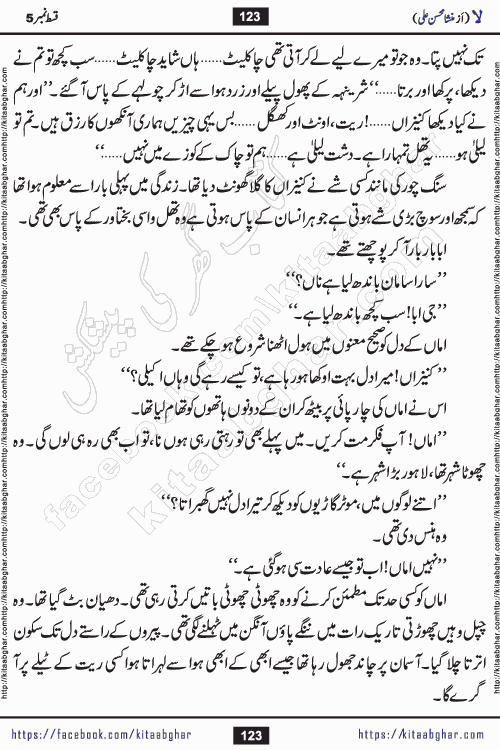 لا (از منشا محسن علی)
123
قسط نمبر 5
تک نہیں پتا۔ وہ جو تو میرے لیے لے کر آتی تھی چاکلیٹ...... ہاں شاید چاکلیٹ...... سب کچھ تو تم نے
دیکھا، پرکھا اور برتا......“ شرینہہ کے پھول پیلے اور زرد ہوا سے اڑ کر چولہے کے پاس آ گئے۔ ”اور ہم
نے کیا دیکھا کنیزاں......! ریت، اونٹ اور کھگل...... بس یہی چیزیں ہماری آنکھوں کا رزق ہیں۔ تم تو
لیلیٰ ہو...... یہ تھل تمہارا ہے۔ دشت لیلیٰ ہے...... ہم تو چاک کے کوزے میں نہیں......“
سنگ چور کی مانند کسی شے نے کنیزاں کا گلا گھونٹ دیا تھا۔ زندگی میں پہلی بار اسے معلوم ہوا تھا
کہ سمجھ اور سوچ بڑی شے ہوتی ہے جو ہر انسان کے پاس ہوتی ہے وہ تھل واسی بختاور کے پاس بھی تھی۔
ابا بار بار آ کر پوچھتے تھے۔
”سارا سامان باندھ لیا ہے ناں؟“
”جی ابا! سب کچھ باندھ لیا ہے۔“
اماں کے دل کو صحیح معنوں میں ہول اٹھنا شروع ہو چکے تھے۔
”کنیزاں! میرا دل بہت اوکھا ہو رہا ہے، تو کیسے رہے گی وہاں اکیلی؟“
اس نے اماں کی چارپائی پر بیٹھ کر ان کے دونوں ہاتھوں کو تھام لیا تھا۔
”اماں! آپ فکر مت کریں۔ میں پہلے بھی تو رہتی رہی ہوں نا، تو اب بھی رہ ہی لوں گی۔ وہ
چھوٹا شہر تھا، لاہور بڑا شہر ہے۔“
”اتنے لوگوں میں، موٹر گاڑیوں کو دیکھ کر تیرا دل نہیں گھبراتا؟“
وہ ہنس دی تھی۔
”نہیں اماں! اب تو جیسے عادت سی ہو گئی ہے۔“
اماں کو کسی حد تک مطمئن کرنے کو وہ چھوٹی چھوٹی باتیں کرتی رہی تھی۔ دھیان بٹ گیا تھا۔ وہ
چپل وہیں چھوڑتی تاریک رات میں ننگے پاؤں آنگن میں ٹہلنے لگی تھی۔ پیروں کے راستے دل تک سکون
اترتا چلا گیا۔ آسمان پر چاند جھول رہا تھا جیسے ابھی کے ابھی ہوا سے لہراتا ہوا کسی ریت کے ٹیلے پر آ
گرے گا۔
https://facebook.com/kitaabghar
123
https://kitaabghar.com
کتاب گھر کی پیشکش
facebook.com/kitaabghar
kitaabghar.com
http://kitaabghar.com